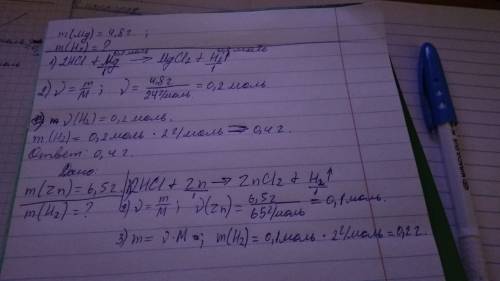 m(Mg) = 4,8г ;
m(H₂) = ?
1) 2HCl + Mg → MgCl₂ + H₂↑
2) ν = m/M ; ν = 4,8г / 24г/моль = 0,2 моль
ν(H₂) = 0,2 моль.
m(H₂) = 0,2 моль · 2г/моль = 0,4г.
Ответ: 0,4г.
Дано
m(Zn) = 6,5г 1) 2HCl + Zn → ZnCl₂ + H₂↑
m(H₂) = ? 2) ν = m/M ; ν(Zn) = 6,5г / 65г/моль = 0,1 моль
3) m = ν · M ; m(H₂) = 0,1 моль · 2г/моль = 0,2г.